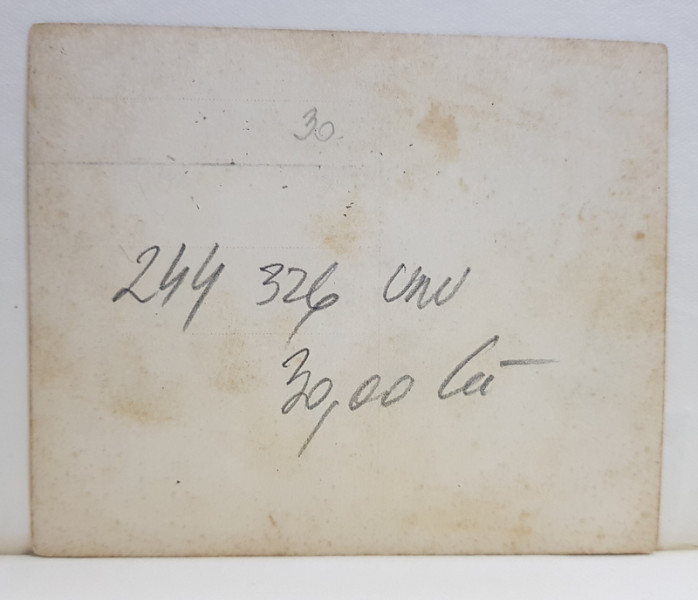 30.
244 326 UMV
30,00 lei